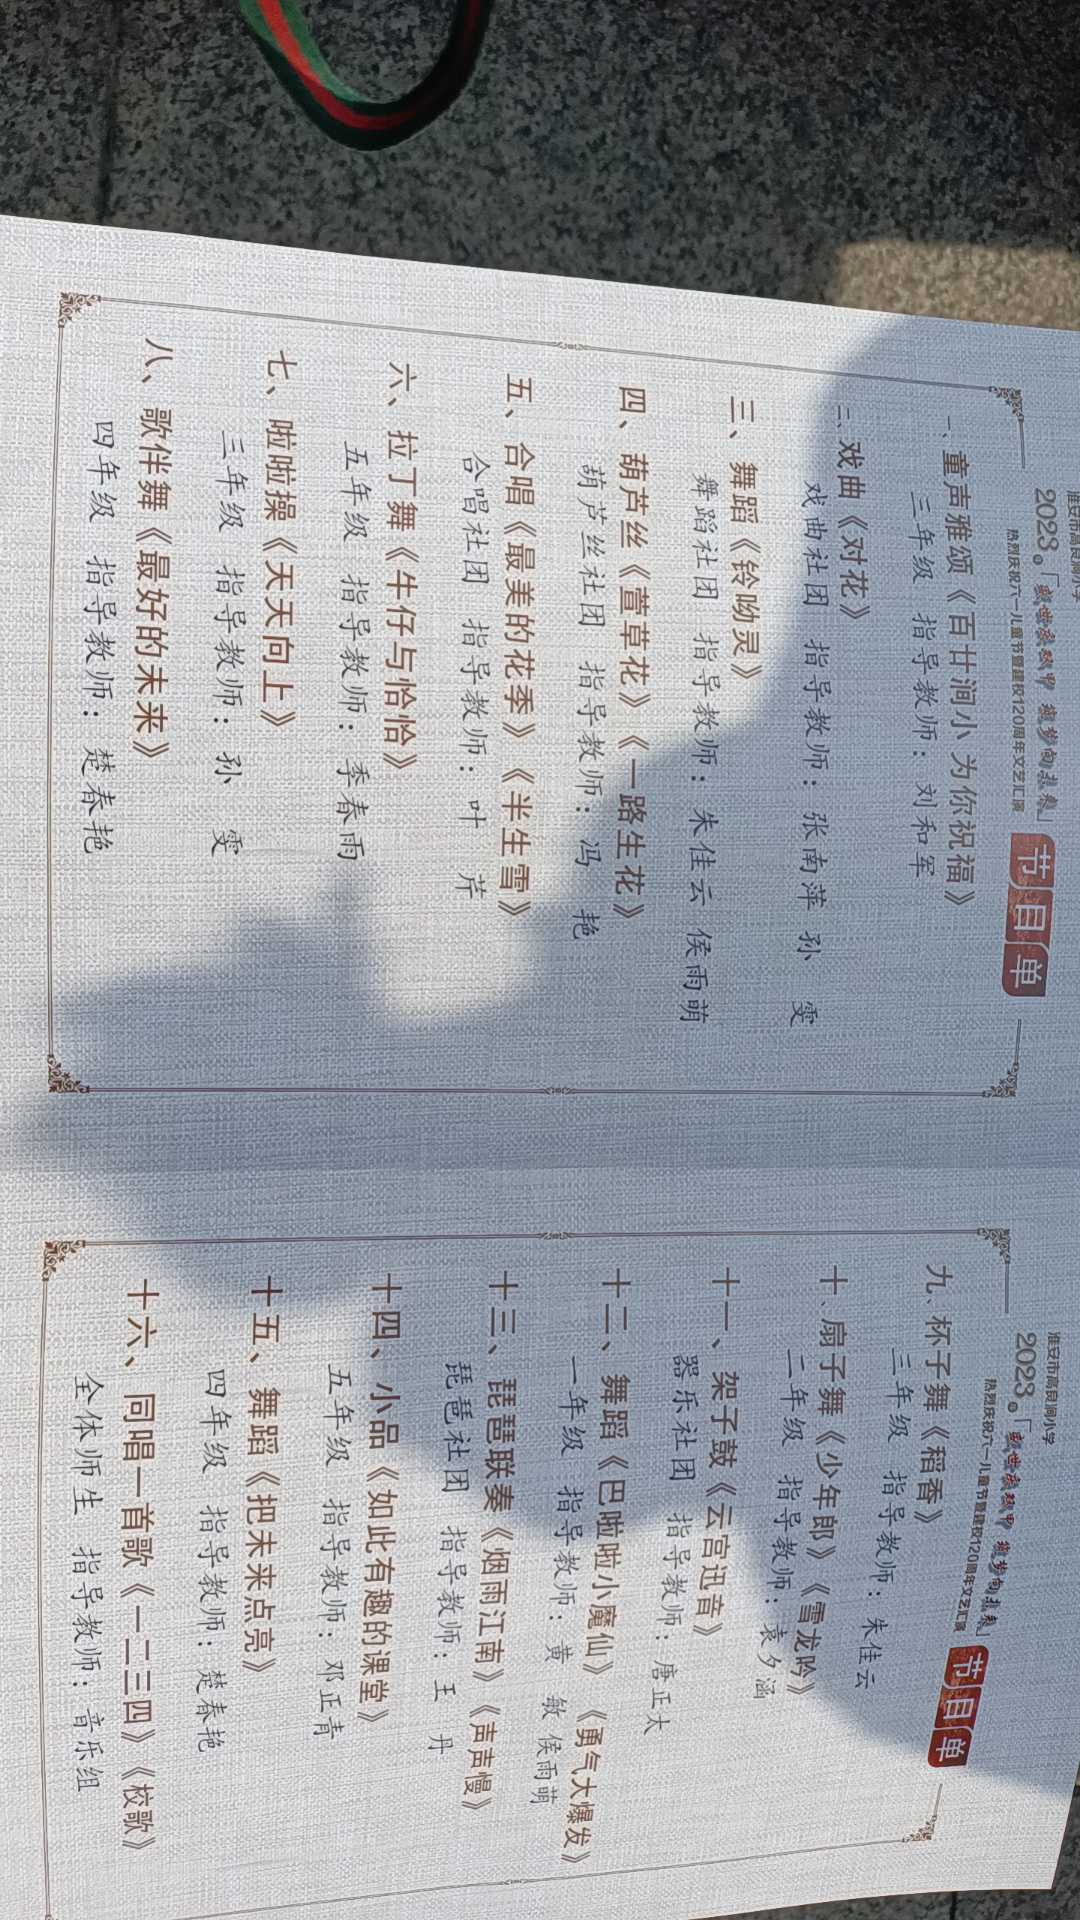 淮安市高良涧小学
2023
热烈庆祝六一儿童节暨建校120周年文艺汇演
节目单
一、童声雅颂《百廿涧小 为你祝福》
三年级 指导教师：刘和军
二、戏曲《对花》
戏曲社团 指导教师：张南萍 孙 雯
三、舞蹈《铃呦灵》
舞蹈社团 指导教师：朱佳云 侯雨萌
四、葫芦丝《萱草花》《一路生花》
葫芦丝社团 指导教师：冯 艳
五、合唱《最美的花季》《半生雪》
合唱社团 指导教师：叶 芹
六、拉丁舞《牛仔与恰恰》
五年级 指导教师：季春雨
七、啦啦操《天天向上》
三年级 指导教师：孙 雯
八、歌伴舞《最好的未来》
四年级 指导教师：楚春艳
淮安市高良涧小学
2023
热烈庆祝六一儿童节暨建校120周年文艺汇演
节目单
九、杯子舞《稻香》
三年级 指导教师：朱佳云
十、扇子舞《少年郎》《雪龙吟》
二年级 指导教师：袁夕涵
十一、架子鼓《云宫迅音》
器乐社团 指导教师：唐正大
十二、舞蹈《巴啦啦小魔仙》《勇气大爆发》
一年级 指导教师：黄 敏 侯雨萌
十三、琵琶联奏《烟雨江南》《声声慢》
琵琶社团 指导教师：王 丹
十四、小品《如此有趣的课堂》
五年级 指导教师：邓正青
十五、舞蹈《把未来点亮》
四年级 指导教师：楚春艳
十六、同唱一首歌《一二三四》《校歌》
全体师生 指导教师：音乐组